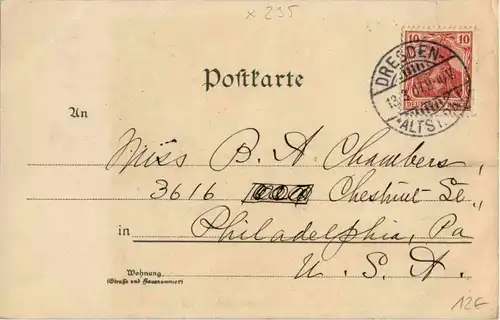 x 235
10 10
DRESDEN-
ALTST.
Postkarte
An
Miss B. A. Chambers,
3616 Chestnut St.,
in Philadelphia, Pa
U. S. A.
Wohnung
(Straße und Hausnummer)
12€